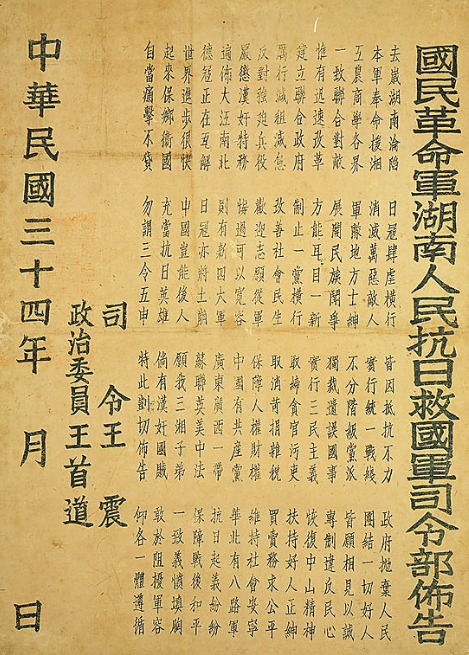 國民革命軍湖南人民抗日救國軍司令部佈告
去歲湖南淪陷 日寇肆虐橫行 皆因抵抗不力 政府拋棄人民
本軍奉命援湘 消滅萬惡敵人 實行統一戰綫 團結一切好人
工農商學各界 軍隊地方士紳 不分階級黨派 皆願相見以誠
一致聯合對敵 展開民族鬪爭 獨裁遺誤國事 專制違反民心
惟有迅速改革 方能耳目一新 實行三民主義 恢復中山精神
建立聯合政府 制止一黨橫行 取締貪官污吏 扶持好人正紳
厲行減租減息 改善社會民生 取消苛捐雜稅 買賣務求公平
反對強迫兵役 歡迎志願從軍 保障人權財權 維持社會安寧
嚴懲漢奸特務 悔過可以寬容 中國有共產黨 華北有八路軍
遍佈大江南北 則有新四大軍 廣東廣西一帶 抗日起義紛紛
德寇正在瓦解 日寇亦將土崩 蘇聯英美中法 保障戰後和平
世界進步很快 中國豈能後人 願我三湘子弟 一致義憤填胸
起來保鄉衛國 充當抗日英雄 倘有漢奸國賊 敢於阻撓軍容
自當痛擊不貸 勿謂三令五申 特此剴切佈告 仰各一體遵循
司令王震
政治委員王首道
中華民國三十四年 月 日